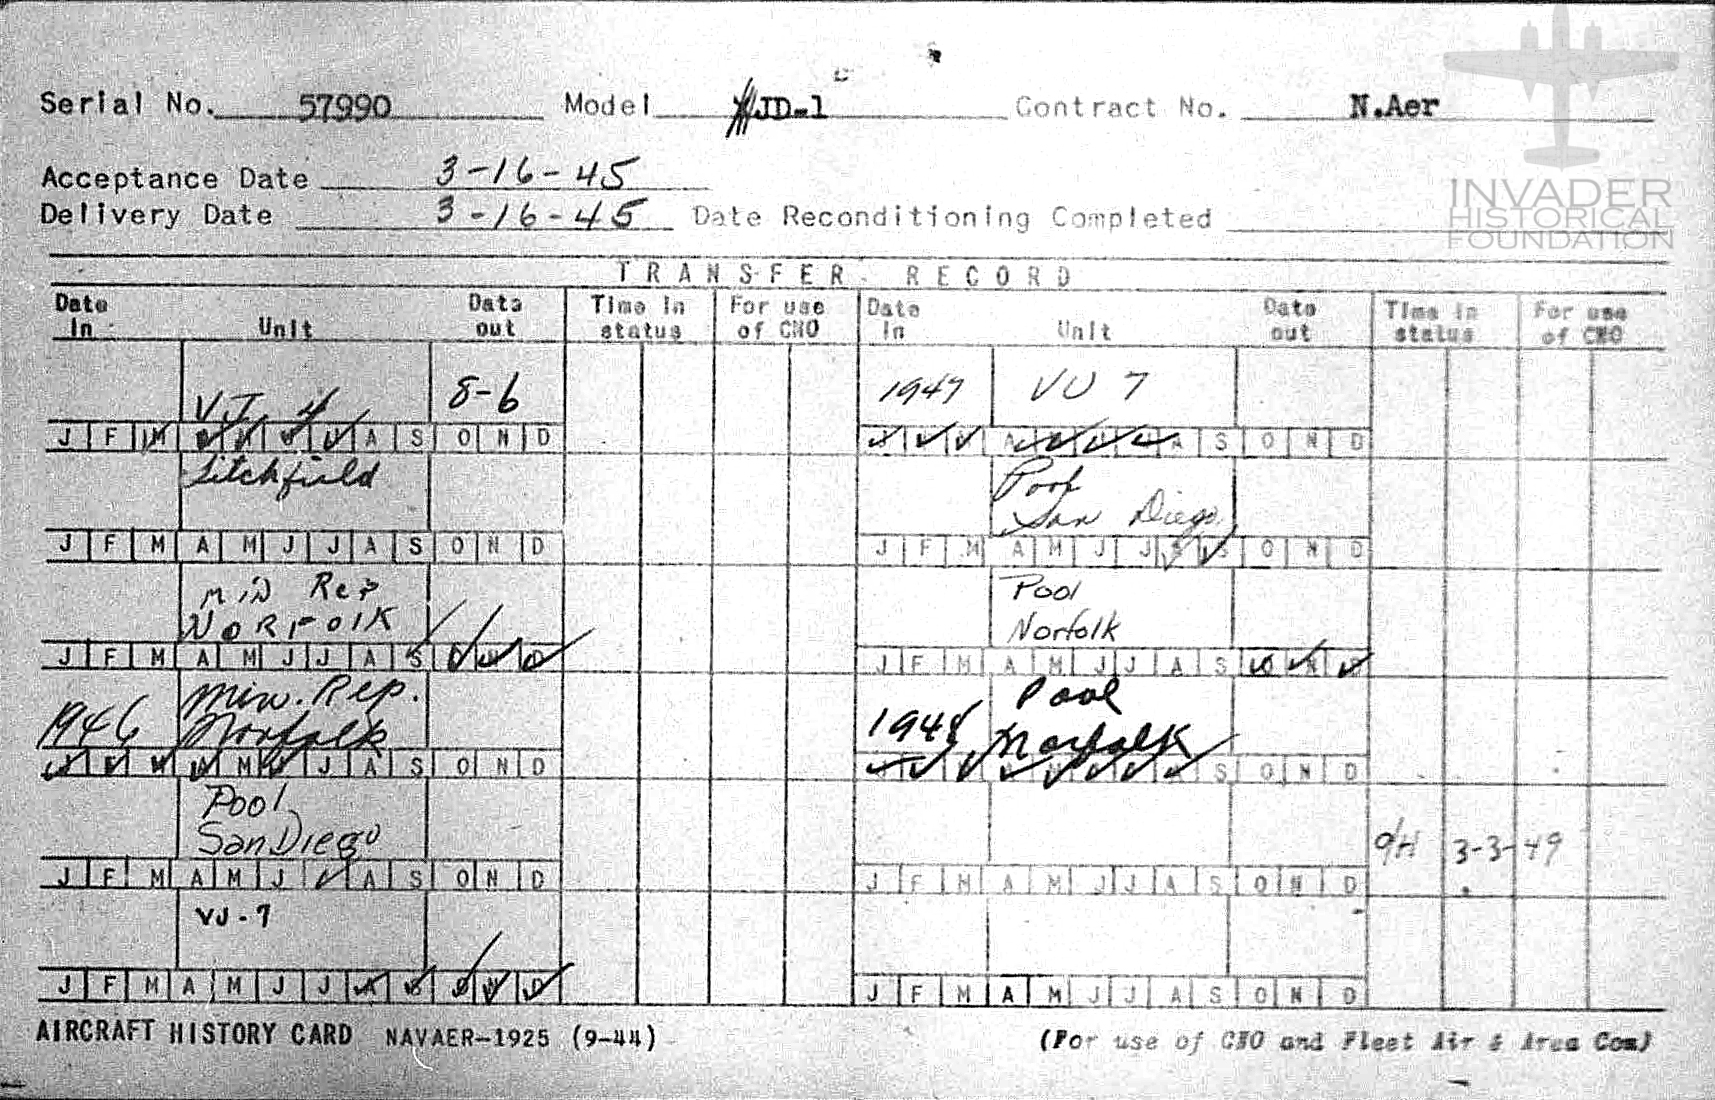 Serial No. 57990 Model JD-1 Contract No. N.Aer
Acceptance Date 3-16-45
Delivery Date 3-16-45 Date Reconditioning Completed
INVADER
HISTORICAL
FOUNDATION
TRANSFER RECORD
Date in Unit Date out Time in status For use of CNO Date in Unit Date out Time in status For use of CNO
VJ 4 8-6
J F M A S O N D
Litchfield
J F M A M J J A S O N D
Min Rep
Norfolk
J F M A M J J A S O N D
1946 Min. Rep.
Norfolk
J F M A M J J A S O N D
Pool
San Diego
J F M A M J A S O N D
VJ-7
J F M A M J J A S O N D
1947 VU 7
A S O N D
Pool
San Diego
J F M A M J J A S O N D
Pool
Norfolk
J F M A M J J A S O N D
1948 Pool
Norfolk
S O N D
3-3-49
J F M A M J J A S O N D
J F M A M J J A S O N D
AIRCRAFT HISTORY CARD NAVAER-1925 (9-44) (For use of CNO and Fleet Air & Area Com)